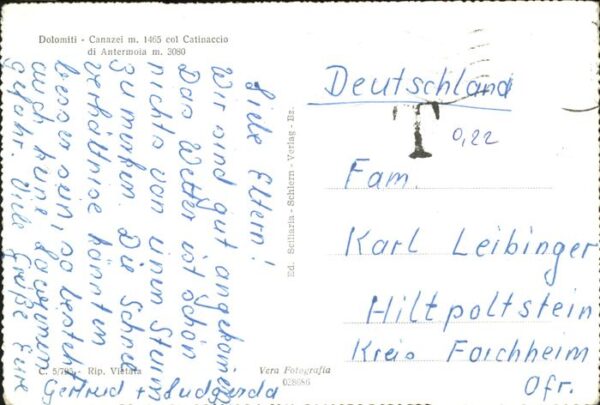 Dolomiti - Canazei m. 1465 col Catinaccio
di Antermoia m. 3080
Liebe Eltern!
Wir sind gut angekommen
Das Wetter ist schön
nichts von einem Sturm
zu merken. Die Schnee
verhältnise könnten
besser sein, so besteht
auch keine Lawinen
gefahr. Viele Grüße Eure
Gertrud + Ludgerda
C. 5/795 - Rip. Vietata
Ed. Sciliaria - Schlern - Verlag - Bz.
Vera Fotografia
028686
Deutschland
T 0,22
Fam.
Karl Leibinger
Hiltpoltstein
Kreis Forchheim
Ofr.